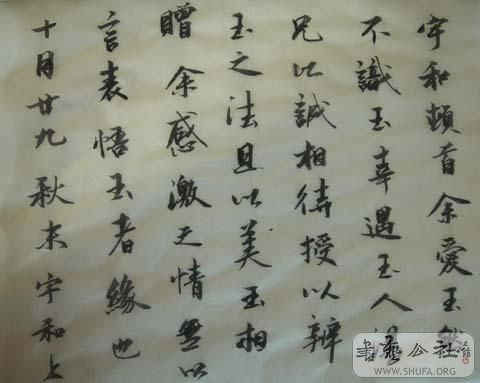 宇和頓首余愛玉然
不識玉幸遇玉人
兄以誠相待授以辨
玉之法且以美玉相
贈余感激之情無以
言表悟玉者緣也
十月廿九秋末宇和上
書藝公社
WWW.SHUFA.ORG